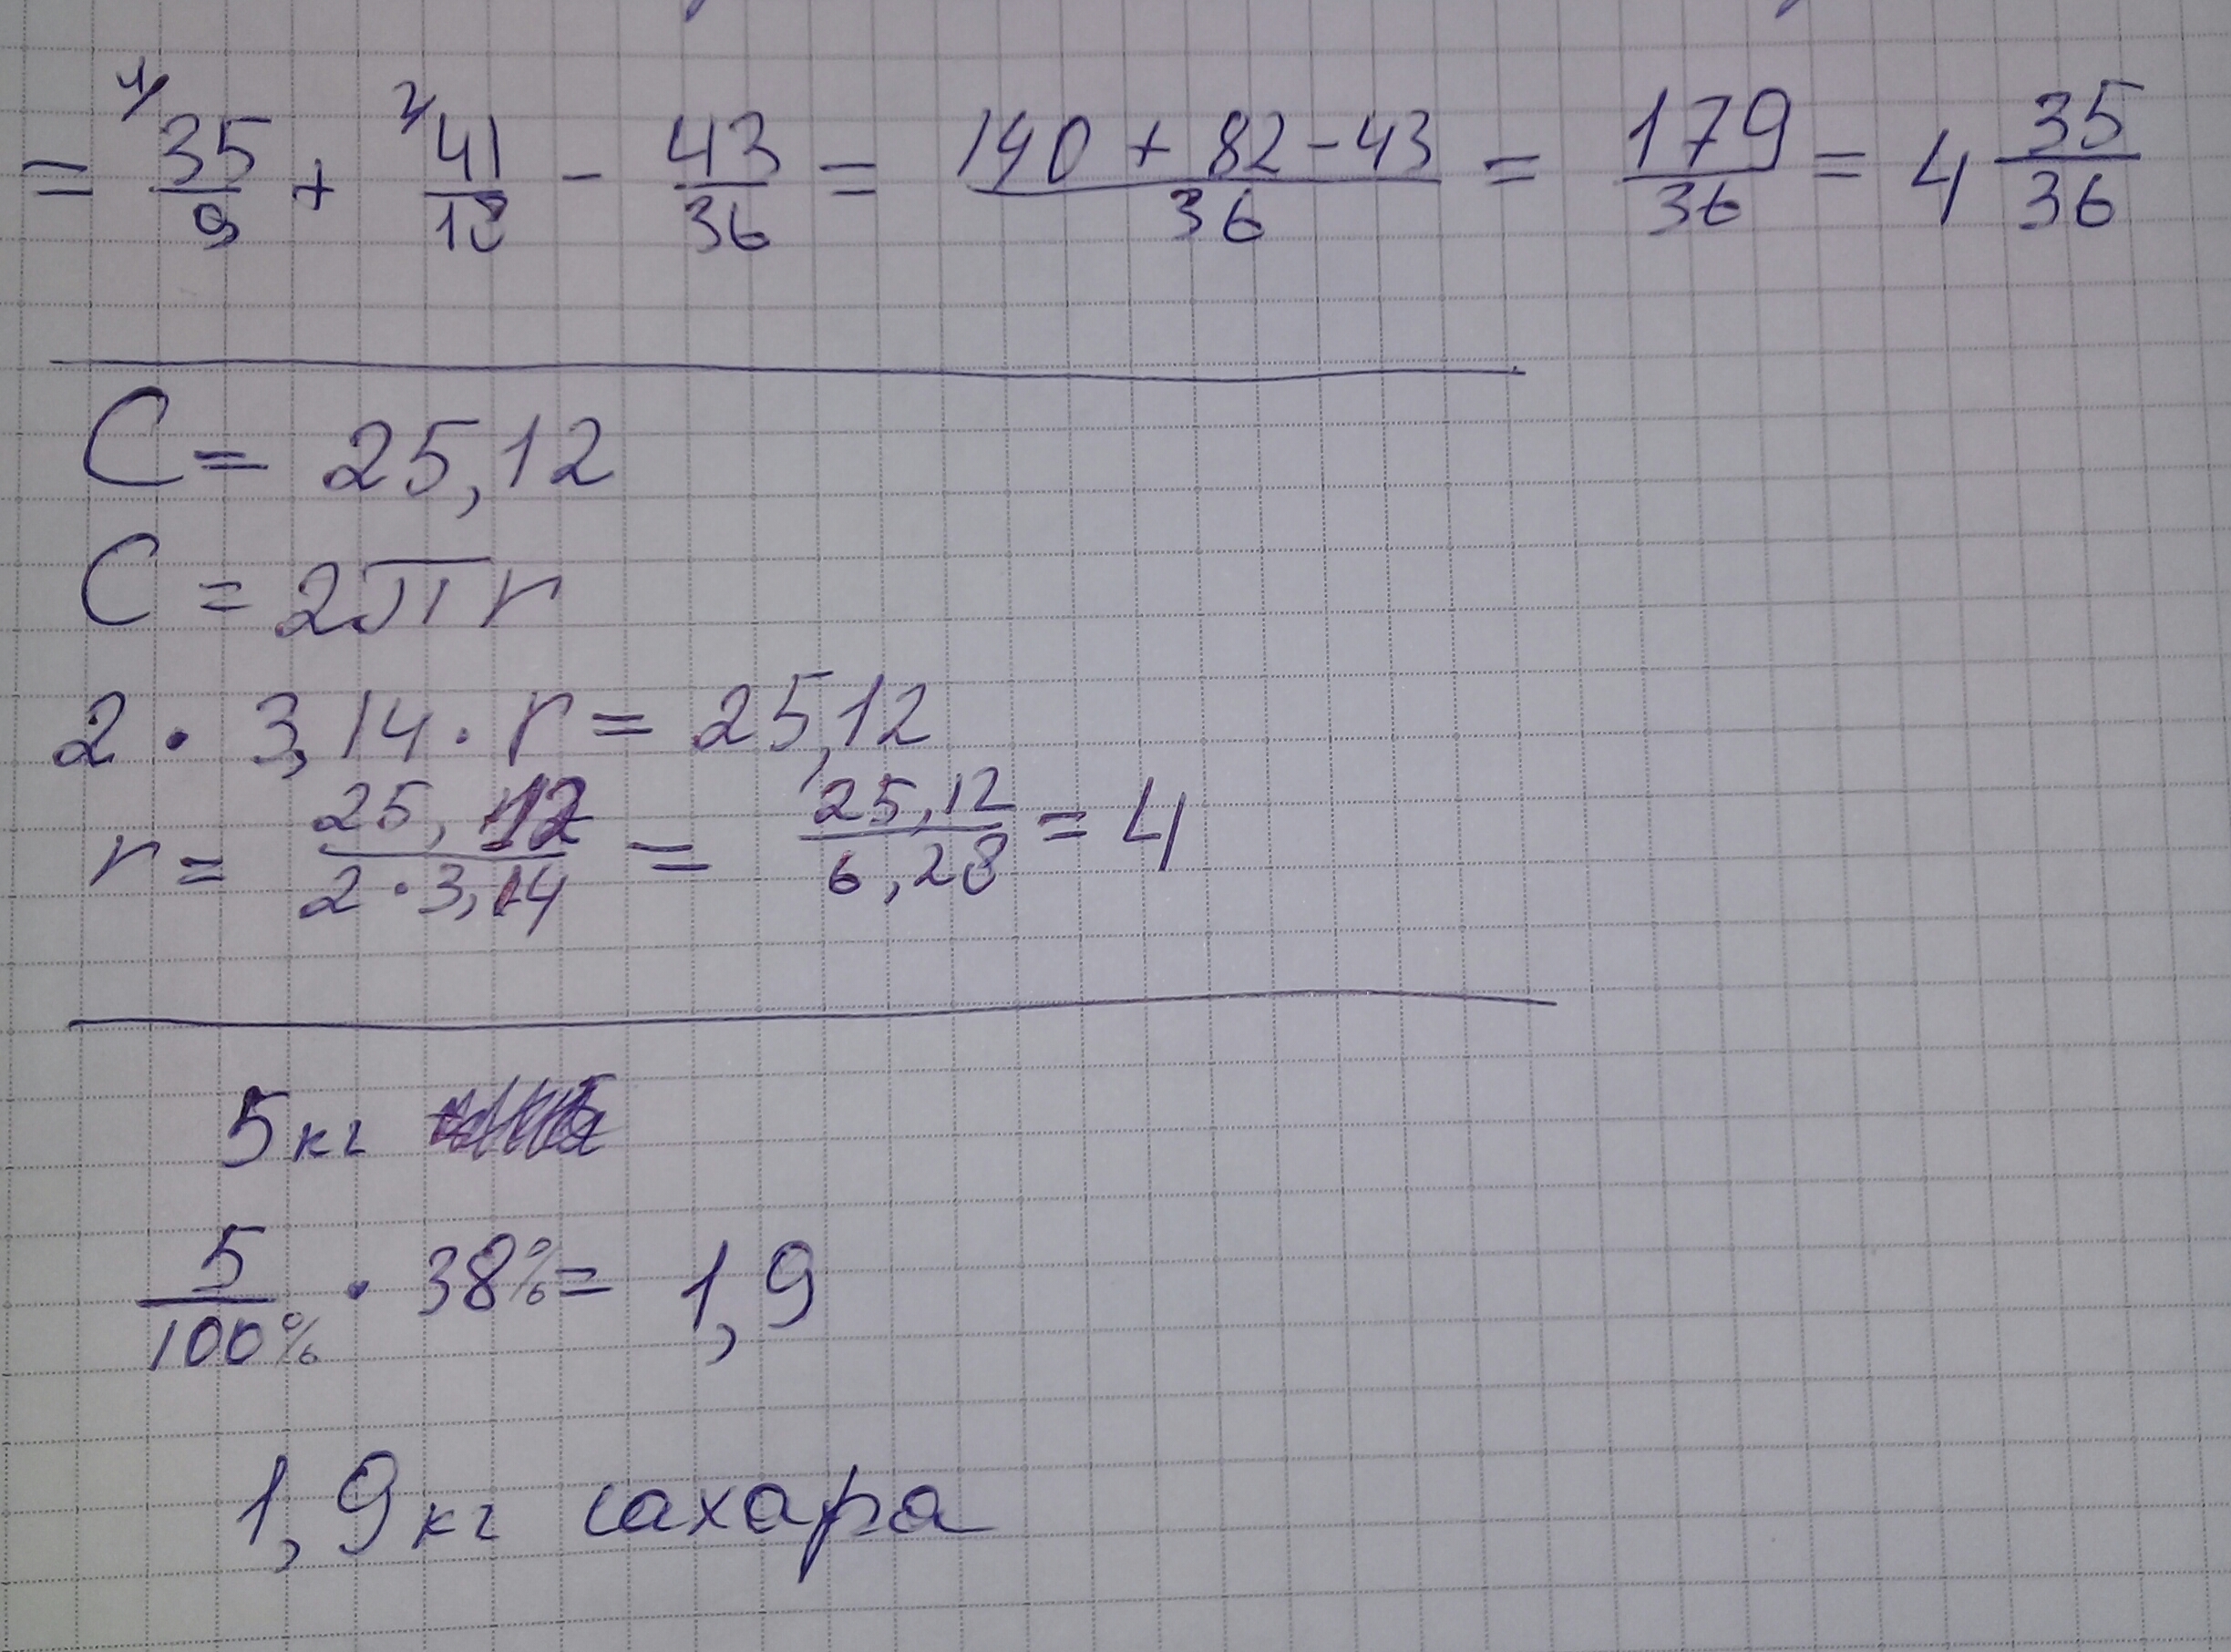 = 4/ 35/9 + 2/ 41/18 - 43/36 = (140 + 82 - 43)/36 = 179/36 = 4 35/36
C = 25,12
C = 2πr
2 · 3,14 · r = 25,12
r = 25,12/(2 · 3,14) = 25,12/6,28 = 4
5 кг
5/100% · 38% = 1,9
1,9 кг сахара